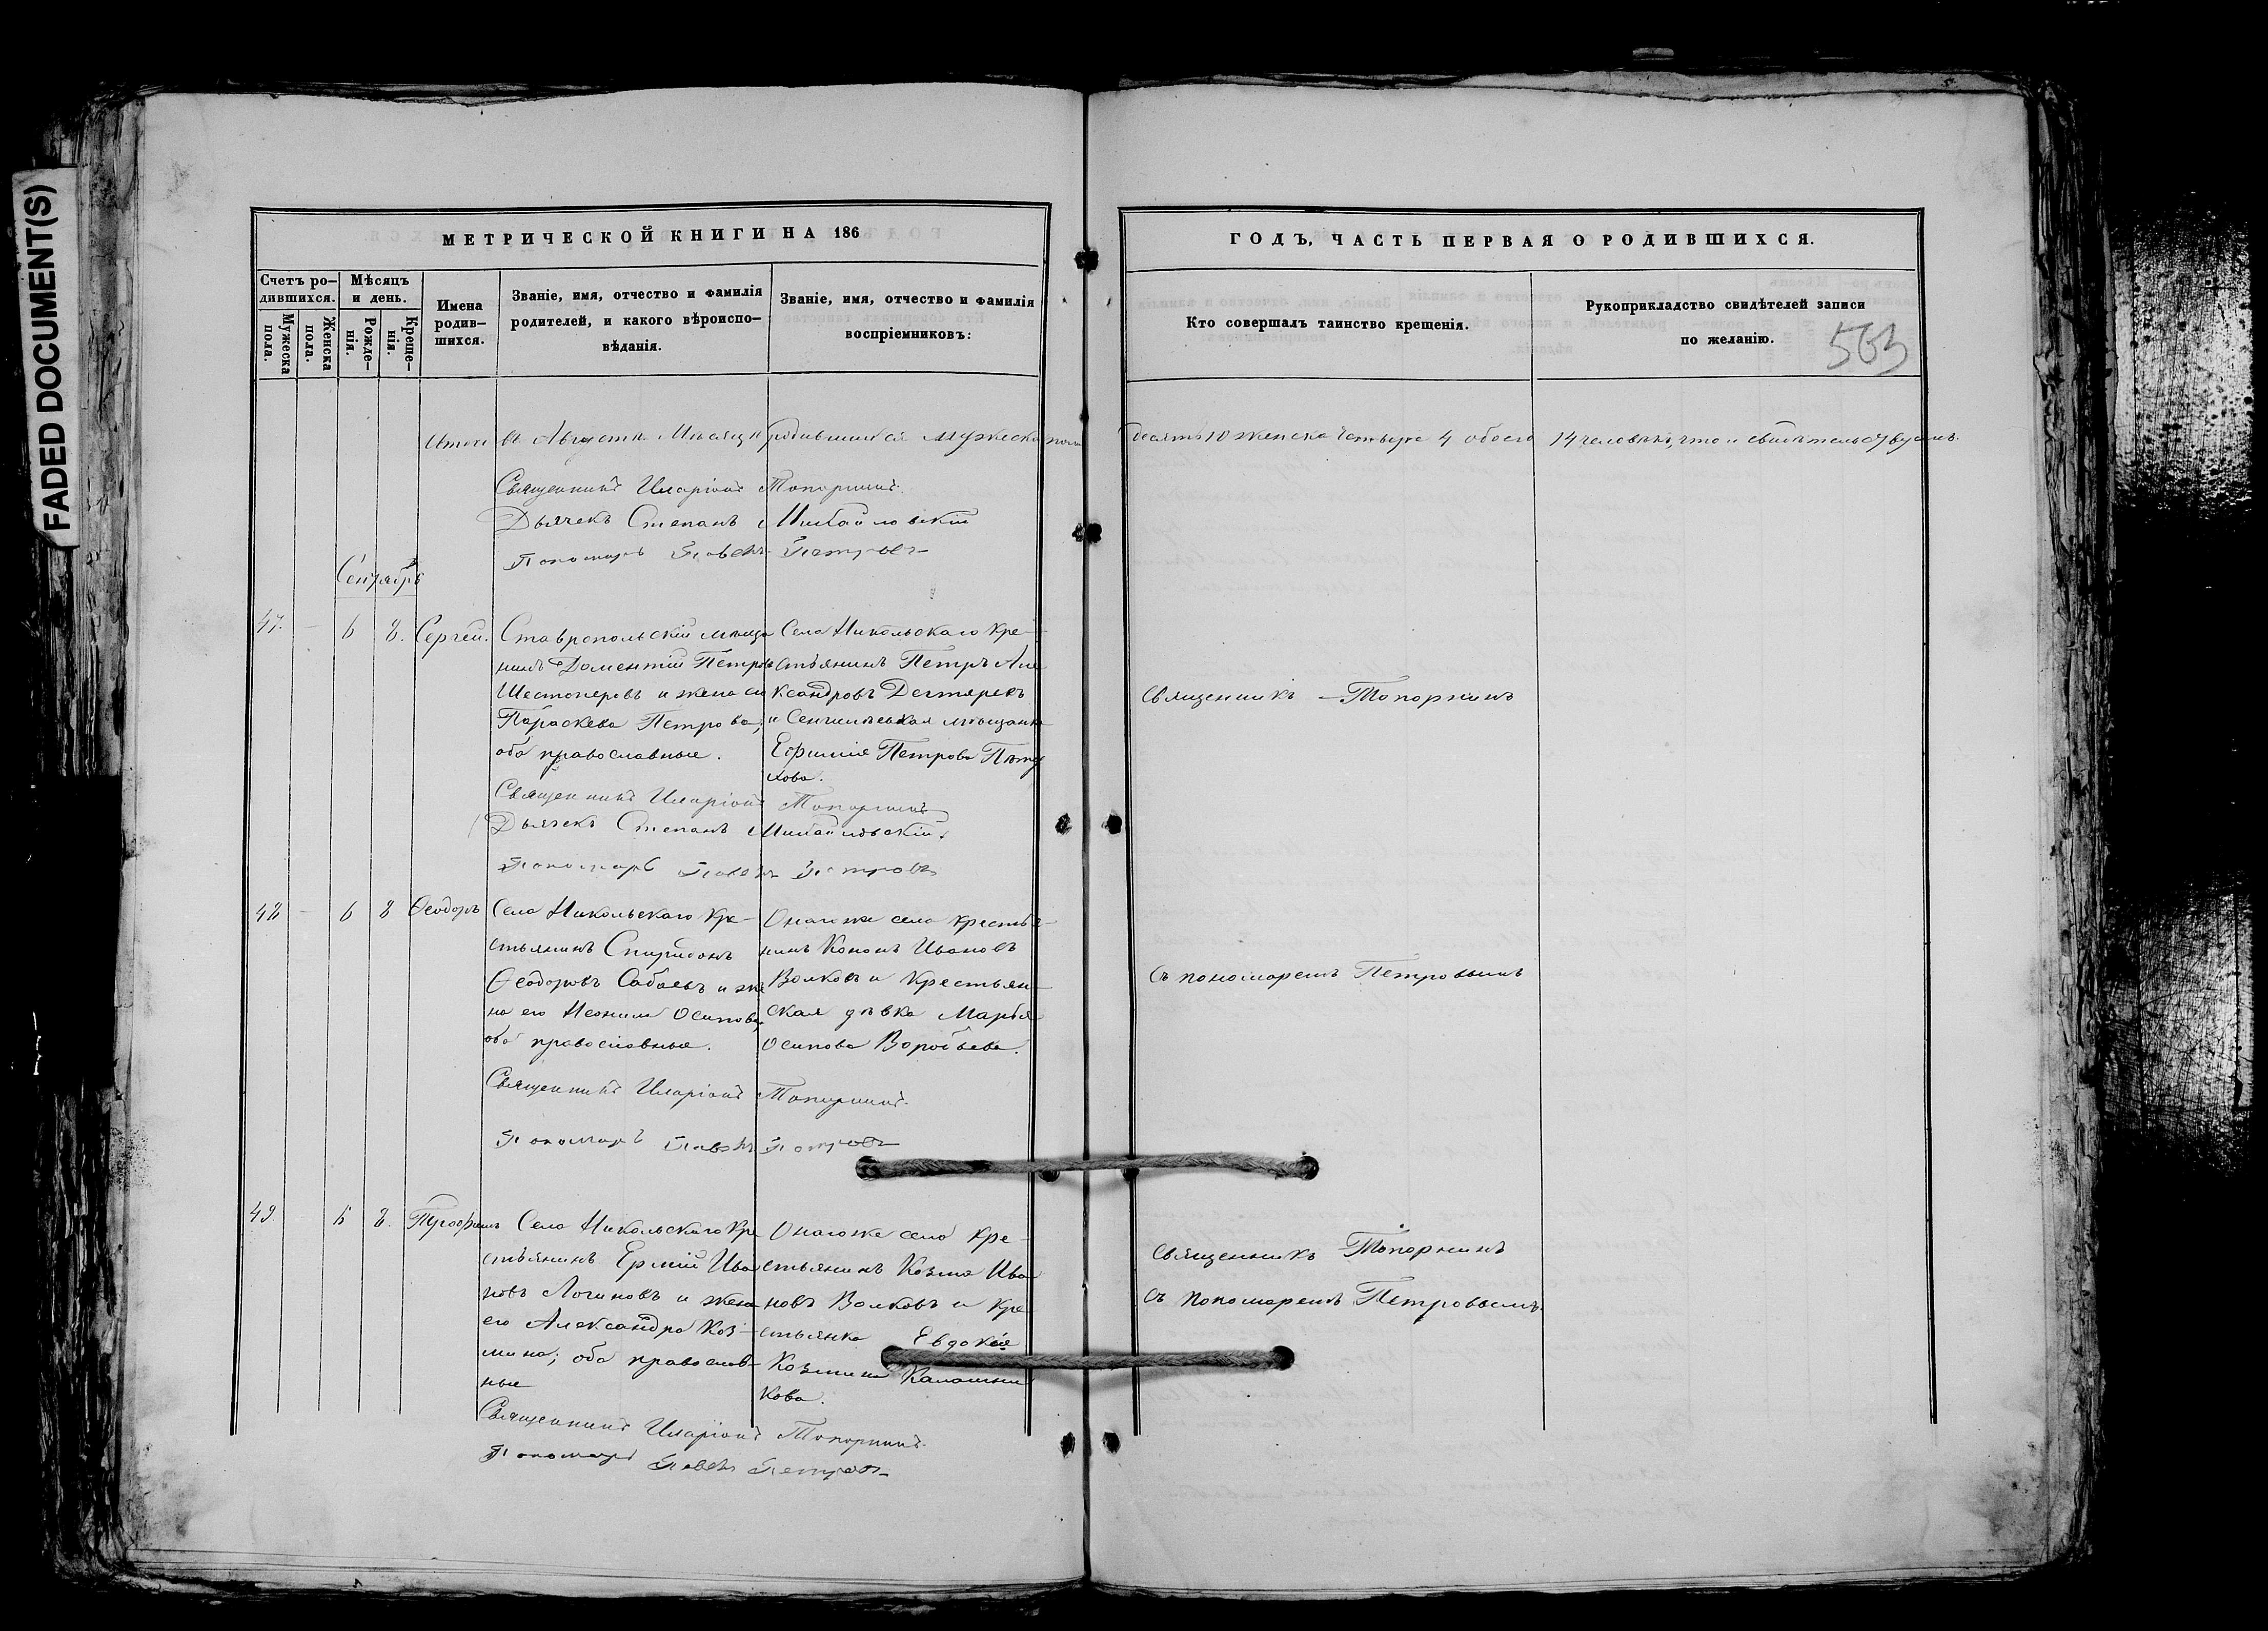 FADED DOCUMENT(S)
МЕТРИЧЕСКОЙ КНИГИ НА 186
ГОДЪ, ЧАСТЬ ПЕРВАЯ О РОДИВШИХСЯ.
Счетъ ро-
дившихся.
Мужеска
пола.
Женска
пола.
Мѣсяцъ
и день.
Рожде-
нія.
Креще-
нія.
Имена
родив-
шихся.
Званіе, имя, отчество и фамилія
родителей, и какого вѣроиспо-
вѣданія.
Званіе, имя, отчество и фамилія
воспріемниковъ:
Кто совершалъ таинство крещенія.
Рукоприкладство свидѣтелей записи
по желанію.
563
Итого въ Августѣ Мѣсяцѣ родившихся мужеска пола десять 10 женска четыре 4 обоего 14 человѣкъ, что и свидѣтельствуемъ.
Священникъ Иларіонъ Топорнинъ.
Дьячекъ Степанъ Михайловскій
Пономарь Павелъ Петровъ
Сентябрь
47. - 6 8. Сергей.
Ставропольскій мѣща
нинъ Доментій Петров
Шестоперовъ и жена ег
Параскева Петрова;
оба православные.
Села Никольскаго Кре-
стьянинъ Петръ Але
ксандровъ Дегтяревъ
и Сенгилевская мѣщанка
Ефимія Петрова Пету
хова.
Священникъ Топорнинъ
Священникъ Иларіонъ Топорнинъ
Дьячекъ Степанъ Михайловскій
Пономарь Павелъ Петровъ
48 - 6 8 Ѳеодоръ
Села Никольскаго Кре-
стьянинъ Спиридонъ
Ѳеодоровъ Сабаевъ и же
на его Неонила Осипова,
оба православные.
Онаго же села кресть-
нинъ Кононъ Ивановъ
Волковъ и Крестьян-
ская дѣвка Марья
Осипова Воробьева.
Съ пономаремъ Петровымъ
Священникъ Иларіонъ Топорнинъ.
Пономарь Павелъ Петровъ
49. 6 8. Трофимъ
Села Никольскаго Кре
стьянинъ Ермій Ива
новъ Логиновъ и жена
его Александра Коз-
мина; оба православ-
ные
Онаго же села Кре-
стьянинъ Козма Ива
новъ Волковъ и Кре-
стьянка Евдокія
Козмина Калашни
кова.
Священникъ Топорнинъ
съ Пономаремъ Петровымъ.
Священникъ Иларіонъ Топорнинъ.
Пономарь Павелъ Петровъ